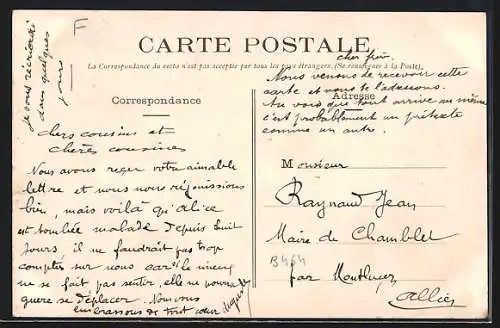 CARTE POSTALE
La Correspondance du recto n'est pas acceptée par tous les pays étrangers. (Se renseigner à la Poste).
Correspondance
Adresse
F
Je vous récrirai
dans quelques
jours
chers cousins et
chères cousines
Nous avons reçu votre aimable
lettre et nous nous réjouissions
bien, mais voilà qu'Alice
est tombée malade depuis huit
jours, il ne faudrait pas trop
compter sur nous car le
ne se fait pas sentir, elle ne pourra
guère se déplacer. Nous vous
embrassons de tout cœur
cher frère.
Nous venons de recevoir cette
carte et nous te l'adressons.
Tu vois que tout arrive au même
c'est probablement un prétexte
comme un autre.
Monsieur
Raynaud Jean
Maire de Chamblet
B464
par Montluçon
Allier